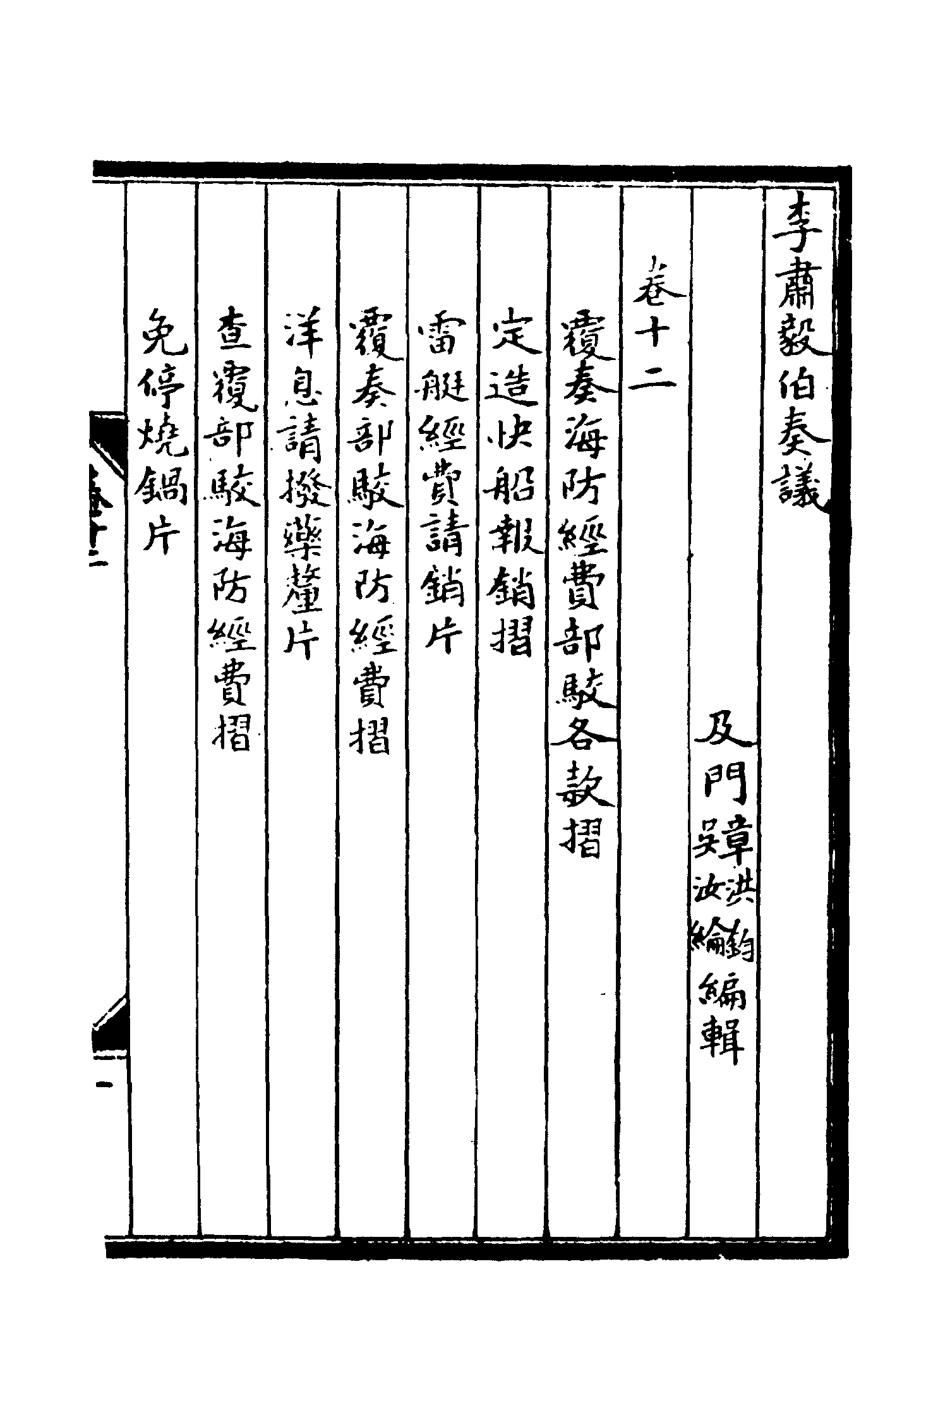 李肅毅伯奏議
及門章洪鈞吳汝綸編輯
卷十二
覆奏海防經費部駮各款摺
定造快船報銷摺
雷艇經費請銷片
覆奏部駮海防經費摺
洋息請撥藥釐片
查覆部駮海防經費摺
免停燒鍋片
卷十二
一